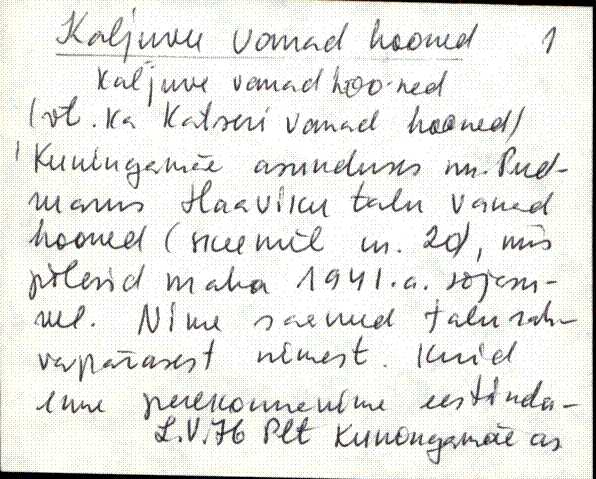 Kaljuvee vanad hooned 1
Kaljuve vanad hooned
(vt. ka Katseri vanad hooned)
Kuningamäe asunduses m. Pud-
manus Haaviku talu vanad
hooned (skeemil m. 20), mis
põlesid maha 1941.a. sõjasu-
vel. Nime saanud talu rah-
vapärasest nimest. Kuid
enne perekonnanime eestinda-
L.V.76 Plt Kuningamäe as